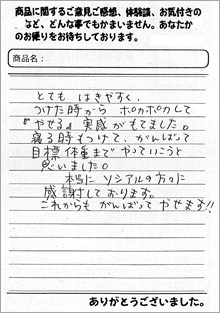 商品に関するご意見ご感想、体験談、お気付きの
など、どんな事でもかまいません。あなたか
のお便りをお待ちしております。
商品名:
とても はきやすく、
つけた時から ポカポカして
『やせる』実感がもてました。
寝る時もつけて、がんばって
目標体重まで やっていこうと
思いました。
本当に ソシアルの方々に
感謝しております。
これからも がんばって やせます!!
ありがとうございました。